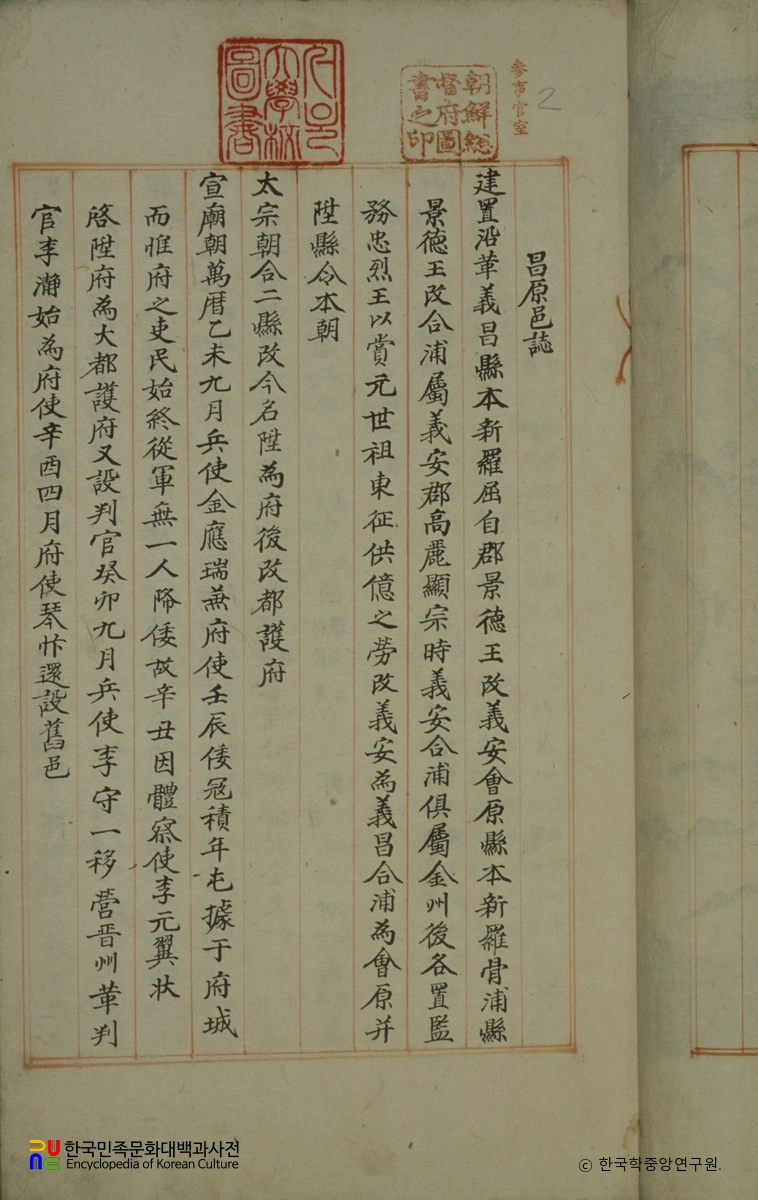 昌原邑誌
建置沿革義昌縣本新羅屈自郡景德王改義安會原縣本新羅骨浦縣
景德王改合浦屬義安郡高麗顯宗時義安合浦俱屬金州後各置監
務忠烈王以賞元世祖東征供億之勞改義安為義昌合浦為會原并
陞縣令本朝
太宗朝合二縣改今名陞為府後改都護府
宣廟朝萬曆乙未九月兵使金應瑞兼府使壬辰倭冦積年屯據于府城
而惟府之吏民始終從軍無一人降倭故辛丑因體察使李元翼狀
啓陞府為大都護府又設判官癸卯九月兵使李守一移營晋州革判
官李瀞始為府使辛酉四月府使琴忭還設舊邑
參事官室
2
朝鮮総
督府圖
書之印
大學校
圖書
한국민족문화대백과사전
Encyclopedia of Korean Culture
© 한국학중앙연구원.